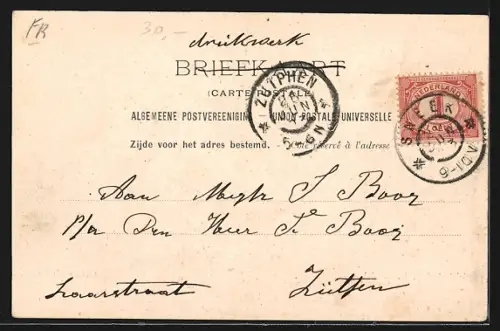 FR 30,-
drukwerk
BRIEFKAART
(CARTE POSTALE)
ALGEMEENE POSTVEREENIGING UNION POSTALE UNIVERSELLE
Zijde voor het adres bestemd. - Côté réservé à l'adresse
NEDERLAND
ZUTPHEN
JUN
5-6N
SNEEK
9-11V
Aan Mejfr S Booy
p/a Den Heer Booy
Laarstraat Zütfen